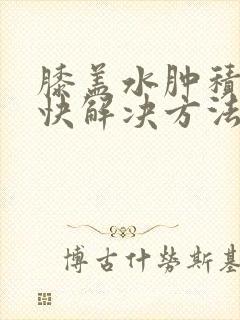 膝盖水肿积
快解决方法
博古什劳斯基